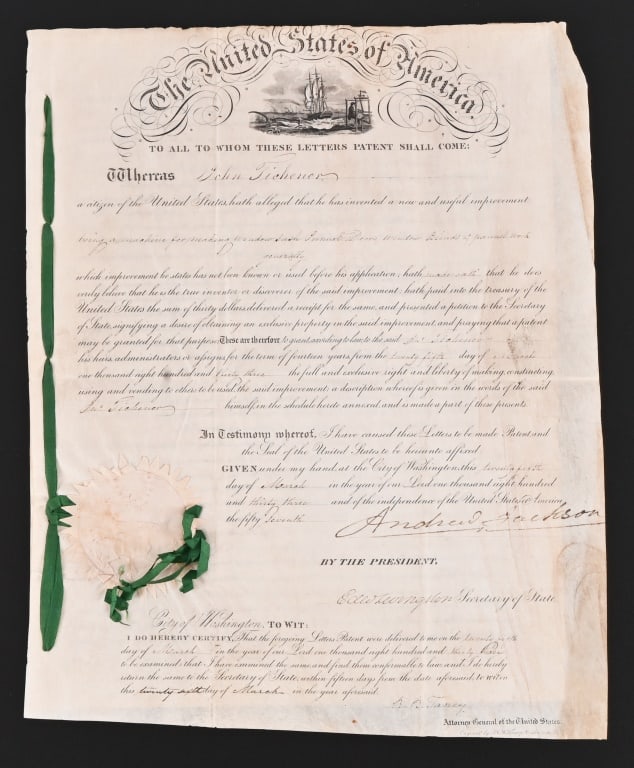 The United States of America.
TO ALL TO WHOM THESE LETTERS PATENT SHALL COME:
Whereas John Tichenor
a citizen of the United States, hath alleged that he has invented a new and useful improvement
being a machine for making window sash Pannel Doors window Blinds & pannel work
generally
which improvement he states has not been known or used before his application; hath made oath that he does
verily believe that he is the true inventor or discoverer of the said improvement; hath paid into the treasury of the
United States the sum of thirty dollars, delivered a receipt for the same, and presented a petition to the Secretary
of State, signifying a desire of obtaining an exclusive property in the said improvement, and praying that a patent
may be granted for that purpose: These are therefore to grant, according to law, to the said Jno Tichenor
his heirs, administrators or assigns, for the term of fourteen years, from the twenty fifth day of March
one thousand eight hundred and thirty three the full and exclusive right and liberty of making, constructing,
using and vending to others to be used, the said improvement, a description whereof is given in the words of the said
Jno Tichenor himself, in the schedule hereto annexed, and is made a part of these presents.
In Testimony whereof, I have caused these Letters to be made Patent and
the Seal of the United States to be hereunto affixed.
GIVEN under my hand, at the City of Washington, this twenty fifth
day of March in the year of our Lord one thousand eight hundred
and thirty three and of the independence of the United States of America,
the fifty Seventh
Andrew Jackson
BY THE PRESIDENT,
Edw Livingston Secretary of State
City of Washington, TO WIT:
I DO HEREBY CERTIFY, That the foregoing Letters Patent were delivered to me on the twenty fifth
day of March in the year of our Lord one thousand eight hundred and thirty three
to be examined; that I have examined the same and find them conformable to law; and I do hereby
return the same to the Secretary of State, within fifteen days from the date aforesaid, to wit: on
this twenty sixth day of March in the year aforesaid.
R. B. Taney
Attorney General of the United States.